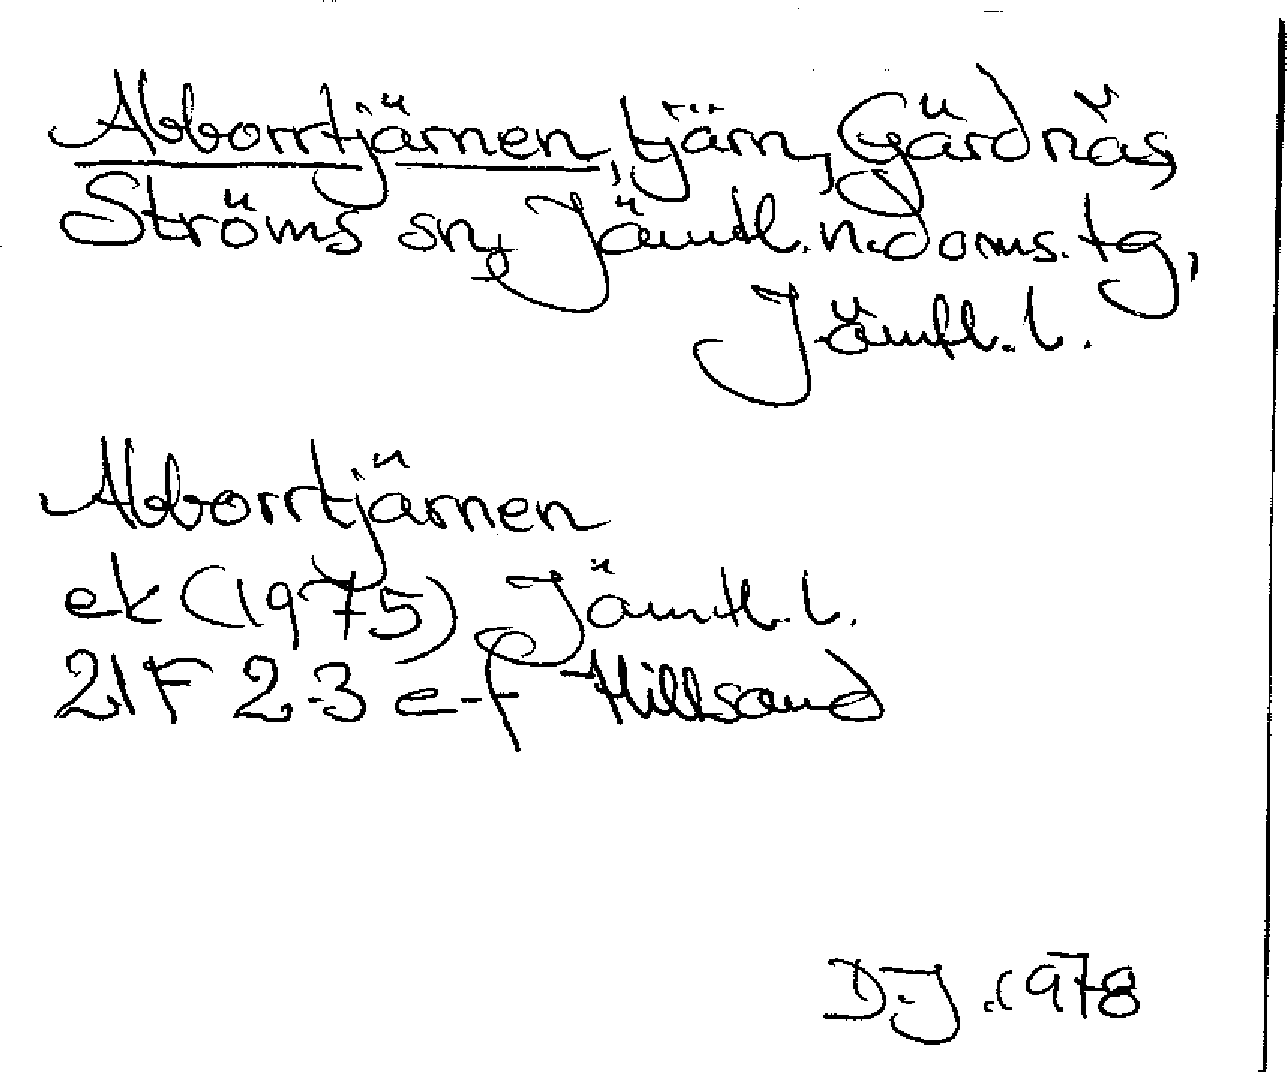 Abborrtjärnen, tjärn, Gärdnäs,
Ströms sn, Jämtl. n. doms. tg,
Jämtl. l.
Abborrtjärnen
ek (1975) Jämtl. l.
21F 2-3 e-f Hillsand
D.J. 1978